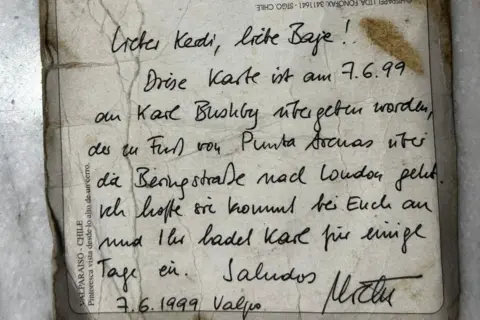 CHESPAFEI LTDA. FONOFAX: 3411641 - STGO. CHILE
Lieber Kerdi, liebe Baje!
Diese Karte ist am 7.6.99
an Karl Bushby übergeben worden,
der zu Fuß von Punta Arenas über
die Beringstraße nach London geht.
Ich hoffe sie kommt bei Euch an
und Ihr ladet Karl für einige
Tage ein. Saludos
7.6.1999 Valpo
VALPARAISO - CHILE
Pintoresca vista desde lo alto de un cerro.